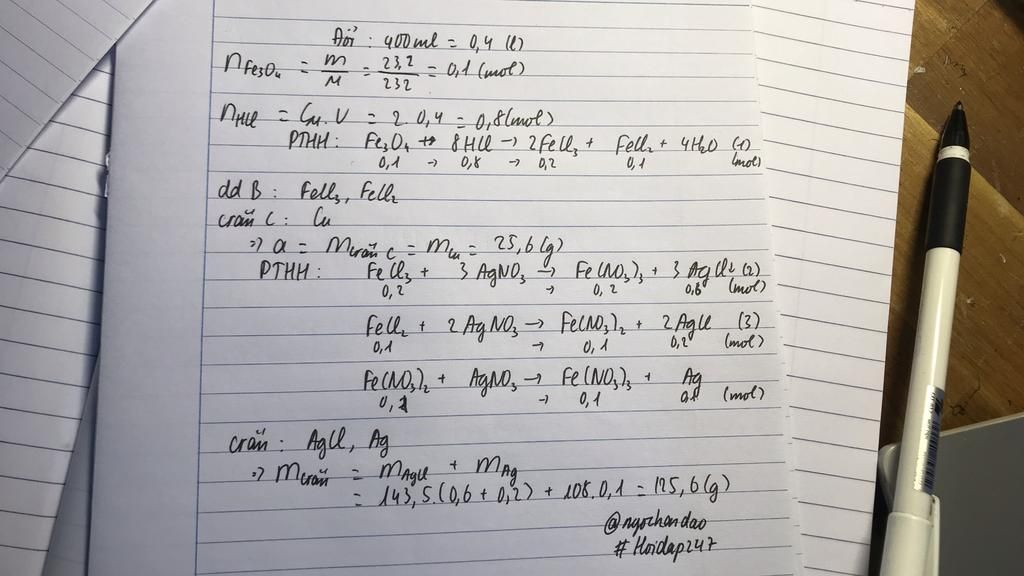 Đổi : 400ml = 0,4 (l)
nFe₃O₄ = m/M = 23,2/232 = 0,1 (mol)
nHCl = CM. V = 2. 0,4 = 0,8 (mol)
PTHH: Fe₃O₄ + 8HCl → 2FeCl₃ + FeCl₂ + 4H₂O (1)
0,1 → 0,8 → 0,2 0,1 (mol)
dd B : FeCl₃, FeCl₂
crắn C : Cu
=> a = mcrắn C = mCu = 25,6 (g)
PTHH: FeCl₃ + 3 AgNO₃ → Fe(NO₃)₃ + 3 AgCl (2)
0,2 → 0,2 0,6 (mol)
FeCl₂ + 2 AgNO₃ → Fe(NO₃)₂ + 2AgCl (3)
0,1 → 0,1 0,2 (mol)
Fe(NO₃)₂ + AgNO₃ → Fe(NO₃)₃ + Ag
0,1 → 0,1 0,1 (mol)
crắn : AgCl, Ag
=> mcrắn = mAgCl + mAg
= 143,5.(0,6 + 0,2) + 108.0,1 = 125,6 (g)
@ngochandao
# Hoidap247